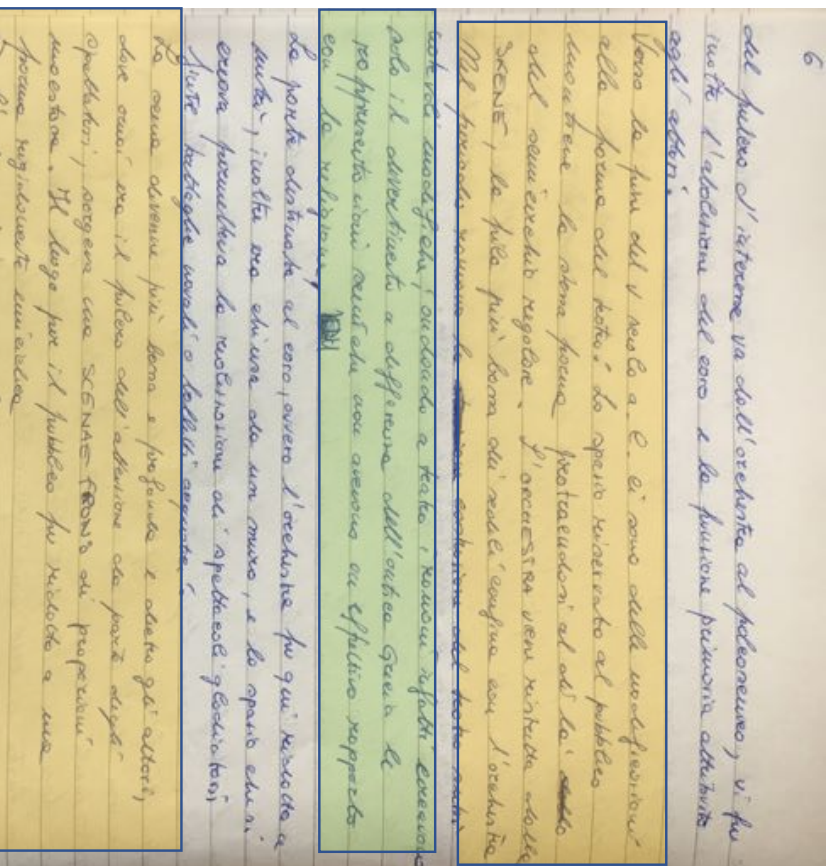 6
del pulpo d'interesse va dall'orchestra al palcoscenico, vi fu
inoltre l'abolizione del coro e la funzione primaria attribuita
agli attori.
Verso la fine del V secolo a.C. ci sono delle modificazioni
alla forma del teatro: Lo spazio riservato al pubblico
mantiene la stessa forma protraendosi al di là
del semicerchio regolare. L'ORCHESTRA viene ristretta dalla
SKENÈ, la fila più bassa dei sedili confina con l'orchestra
Nel periodo romano la del teatro subì
notevoli modifiche, andando a teatro, i romani infatti cercavano
solo il divertimento a differenza dell'antica Grecia le
rappresentazioni sceniche non avevano un effettivo rapporto
con la religione.
La parte destinata al coro, ovvero l'orchestra fu qui ridotta a
metà, inoltre era chiusa da un muro, e lo spazio che si
creava permetteva la realizzazione di spettacoli gladiatori,
finte battaglie navali o balletti acquatici.
La scena divenne più bassa e profonda e dietro gli attori,
dove ormai era il fulcro dell'attenzione da parte degli
spettatori, sorgeva una SCENAE FRONS di proporzioni
maestose. Il luogo per il pubblico fu ridotto a una
forma rigidamente semiciclica